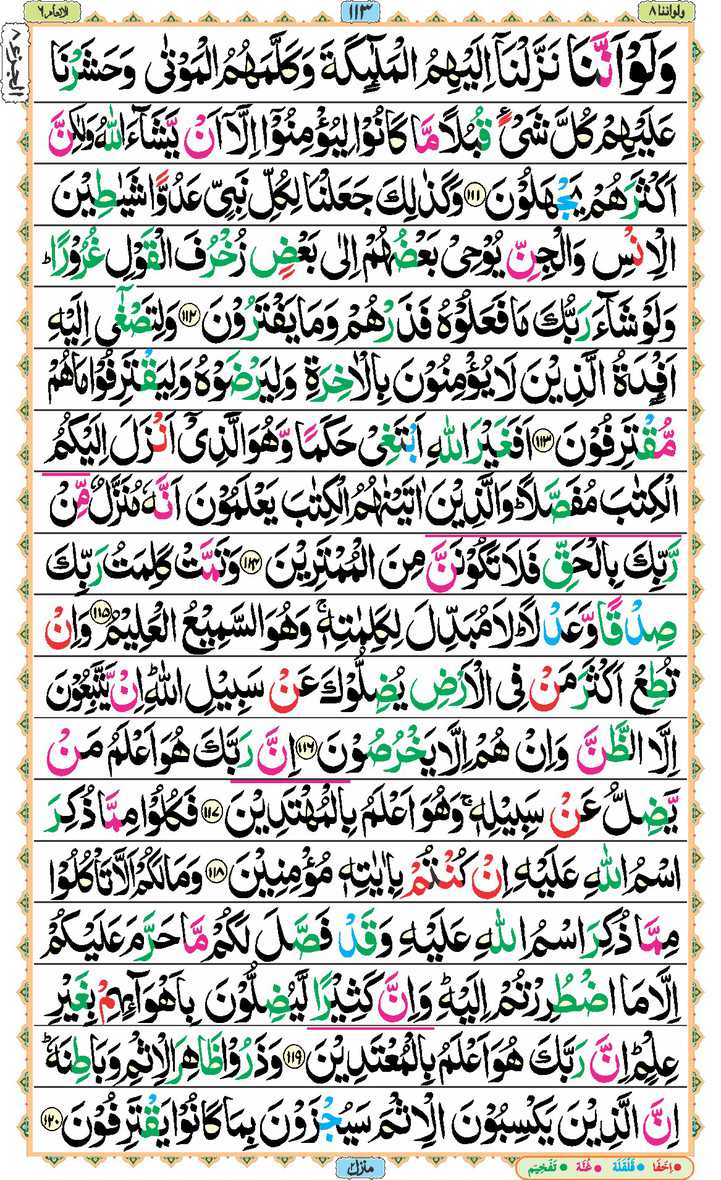 ولواننا ۸
۱۱۳
الانعام ۶
الجزء ۸
وَلَوْ اَنَّنَا نَزَّلْنَاۤ اِلَيْهِمُ الْمَلٰٓئِكَةَ وَكَلَّمَهُمُ الْمَوْتٰى وَحَشَرْنَا
عَلَيْهِمْ كُلَّ شَيْءٍ قُبُلًا مَّا كَانُوْا لِيُؤْمِنُوْۤا اِلَّاۤ اَنْ يَّشَآءَ اللّٰهُ وَلٰكِنَّ
اَكْثَرَهُمْ يَجْهَلُوْنَ ۱۱۱ وَكَذٰلِكَ جَعَلْنَا لِكُلِّ نَبِيٍّ عَدُوًّا شَيٰطِيْنَ
الْاِنْسِ وَالْجِنِّ يُوْحِيْ بَعْضُهُمْ اِلٰى بَعْضٍ زُخْرُفَ الْقَوْلِ غُرُوْرًا ؕ
وَلَوْ شَآءَ رَبُّكَ مَا فَعَلُوْهُ فَذَرْهُمْ وَمَا يَفْتَرُوْنَ ۱۱۲ وَلِتَصْغٰۤى اِلَيْهِ
اَفْـِٕدَةُ الَّذِيْنَ لَا يُؤْمِنُوْنَ بِالْاٰخِرَةِ وَلِيَرْضَوْهُ وَلِيَقْتَرِفُوْا مَا هُمْ
مُّقْتَرِفُوْنَ ۱۱۳ اَفَغَيْرَ اللّٰهِ اَبْتَغِيْ حَكَمًا وَّهُوَ الَّذِيْۤ اَنْزَلَ اِلَيْكُمُ
الْكِتٰبَ مُفَصَّلًا ؕ وَالَّذِيْنَ اٰتَيْنٰهُمُ الْكِتٰبَ يَعْلَمُوْنَ اَنَّهٗ مُنَزَّلٌ مِّنْ
رَّبِّكَ بِالْحَقِّ فَلَا تَكُوْنَنَّ مِنَ الْمُمْتَرِيْنَ ۱۱۴ وَتَمَّتْ كَلِمَتُ رَبِّكَ
صِدْقًا وَّعَدْلًا ؕ لَا مُبَدِّلَ لِكَلِمٰتِهٖ ۚ وَهُوَ السَّمِيْعُ الْعَلِيْمُ ۱۱۵ وَاِنْ
تُطِعْ اَكْثَرَ مَنْ فِي الْاَرْضِ يُضِلُّوْكَ عَنْ سَبِيْلِ اللّٰهِ ؕ اِنْ يَّتَّبِعُوْنَ
اِلَّا الظَّنَّ وَاِنْ هُمْ اِلَّا يَخْرُصُوْنَ ۱۱۶ اِنَّ رَبَّكَ هُوَ اَعْلَمُ مَنْ
يَّضِلُّ عَنْ سَبِيْلِهٖ ۚ وَهُوَ اَعْلَمُ بِالْمُهْتَدِيْنَ ۱۱۷ فَكُلُوْا مِمَّا ذُكِرَ
اسْمُ اللّٰهِ عَلَيْهِ اِنْ كُنْتُمْ بِاٰيٰتِهٖ مُؤْمِنِيْنَ ۱۱۸ وَمَا لَكُمْ اَلَّا تَاْكُلُوْا
مِمَّا ذُكِرَ اسْمُ اللّٰهِ عَلَيْهِ وَقَدْ فَصَّلَ لَكُمْ مَّا حَرَّمَ عَلَيْكُمْ
اِلَّا مَا اضْطُرِرْتُمْ اِلَيْهِ ؕ وَاِنَّ كَثِيْرًا لَّيُضِلُّوْنَ بِاَهْوَآئِهِمْ بِغَيْرِ
عِلْمٍ ؕ اِنَّ رَبَّكَ هُوَ اَعْلَمُ بِالْمُعْتَدِيْنَ ۱۱۹ وَذَرُوْا ظَاهِرَ الْاِثْمِ وَبَاطِنَهٗ ؕ
اِنَّ الَّذِيْنَ يَكْسِبُوْنَ الْاِثْمَ سَيُجْزَوْنَ بِمَا كَانُوْا يَقْتَرِفُوْنَ ۱۲۰
منزل ۲
اِخفَا قَلْقَلَة غُنَّة تَفْخِيْم